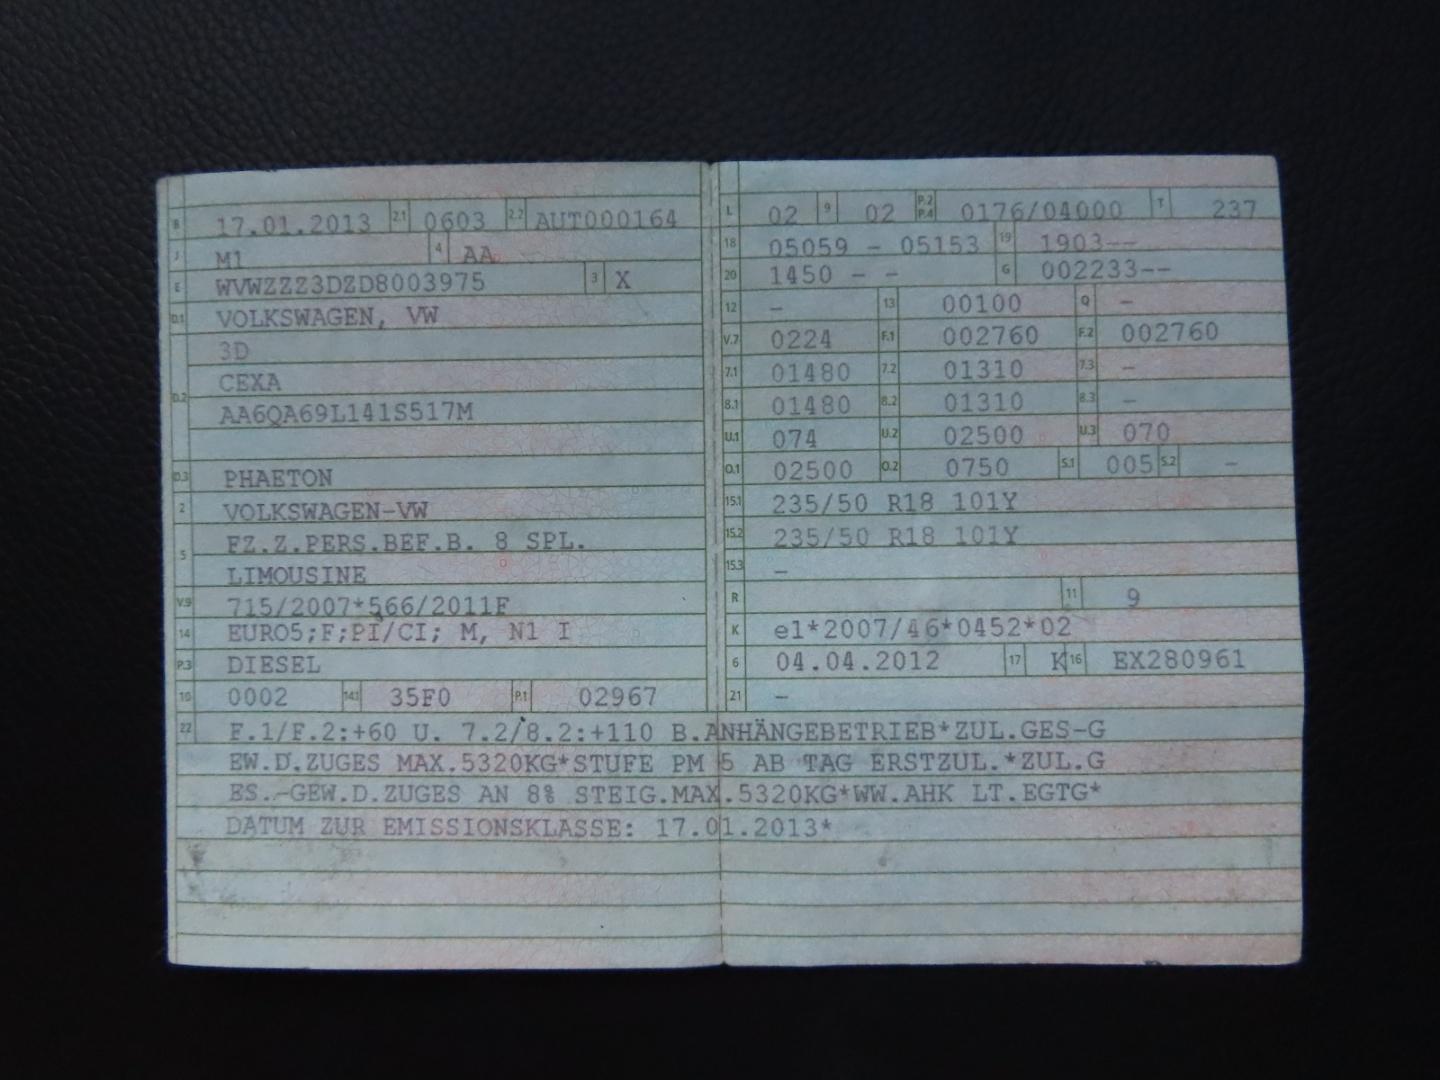 B 17.01.2013 2.1 0603 2.2 AUT000164
J M1 4 AA
E WVWZZZ3DZD8003975 3 X
D.1 VOLKSWAGEN, VW
3D
D.2 CEXA
AA6QA69L141S517M
D.3 PHAETON
2 VOLKSWAGEN-VW
5 FZ.Z.PERS.BEF.B. 8 SPL.
LIMOUSINE
V.9 715/2007*566/2011F
14 EURO5;F;PI/CI; M, N1 I
P.3 DIESEL
10 0002 14.1 35F0 P.1 02967
L 02 9 02 P.2 P.4 0176/04000 T 237
18 05059 - 05153 19 1903--
20 1450 - - G 002233--
12 - 13 00100 Q -
V.7 0224 F.1 002760 F.2 002760
7.1 01480 7.2 01310 7.3 -
8.1 01480 8.2 01310 8.3 -
U.1 074 U.2 02500 U.3 070
O.1 02500 O.2 0750 S.1 005 S.2 -
15.1 235/50 R18 101Y
15.2 235/50 R18 101Y
15.3 -
R 11 9
K e1*2007/46*0452*02
6 04.04.2012 17 K 16 EX280961
21 -
22 F.1/F.2:+60 U. 7.2/8.2:+110 B.ANHÄNGEBETRIEB*ZUL.GES-G
EW.D.ZUGES MAX.5320KG*STUFE PM 5 AB TAG ERSTZUL.*ZUL.G
ES.-GEW.D.ZUGES AN 8% STEIG.MAX.5320KG*WW.AHK LT.EGTG*
DATUM ZUR EMISSIONSKLASSE: 17.01.2013*